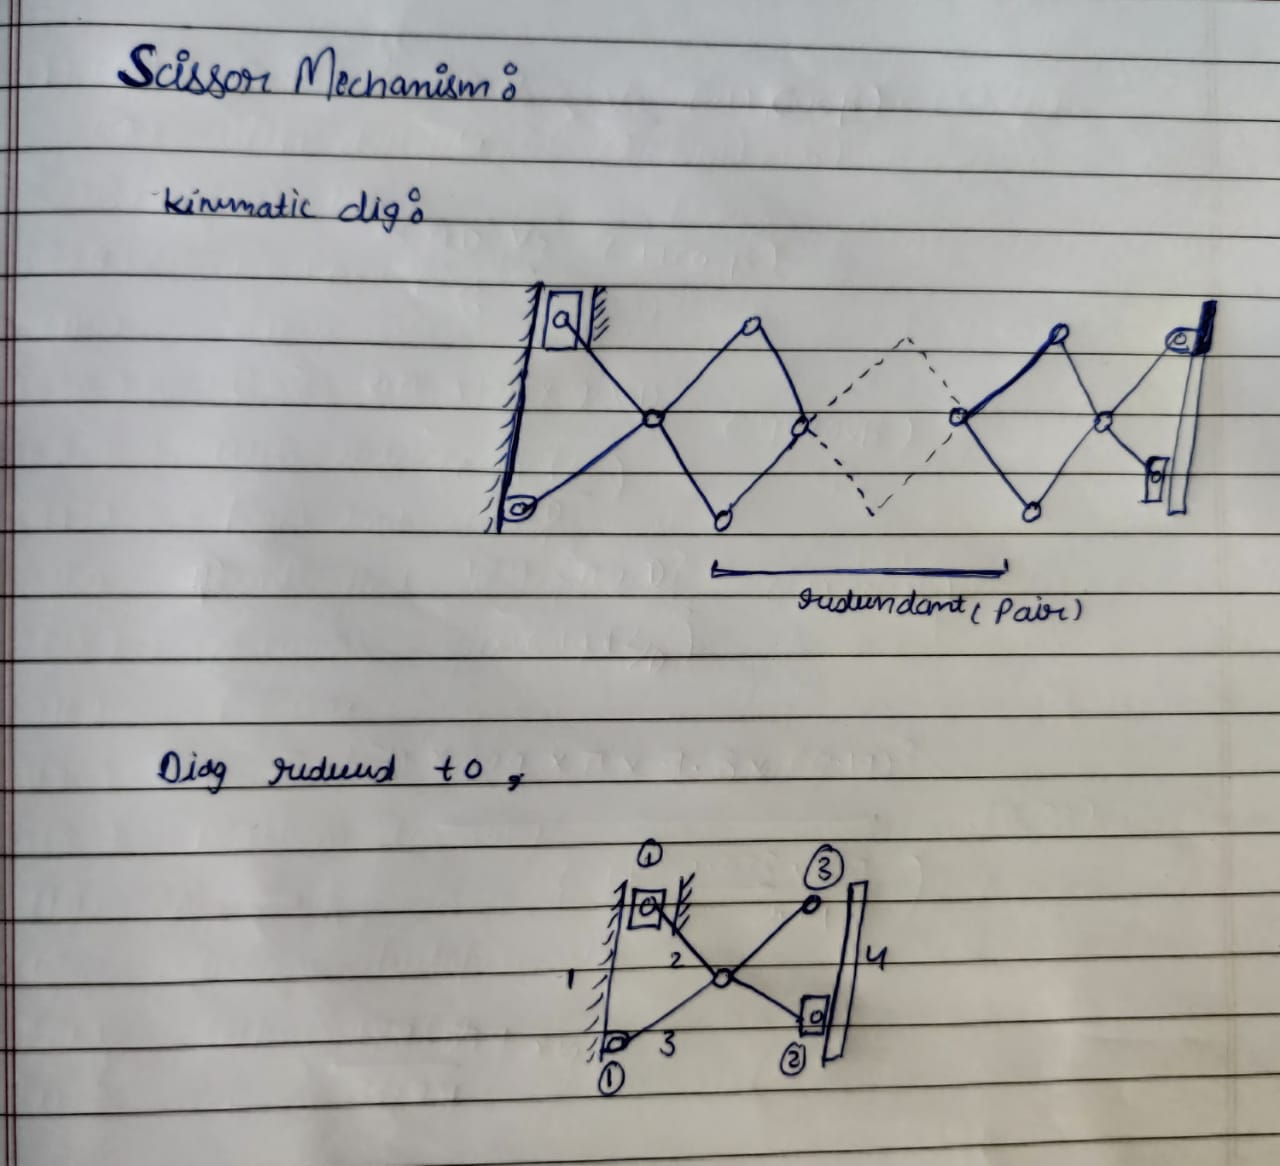 Scissor Mechanism:
Kinematic dig:
redundant (Pair)
Diag reduced to,
① ③
2 4
1
3 ②
①